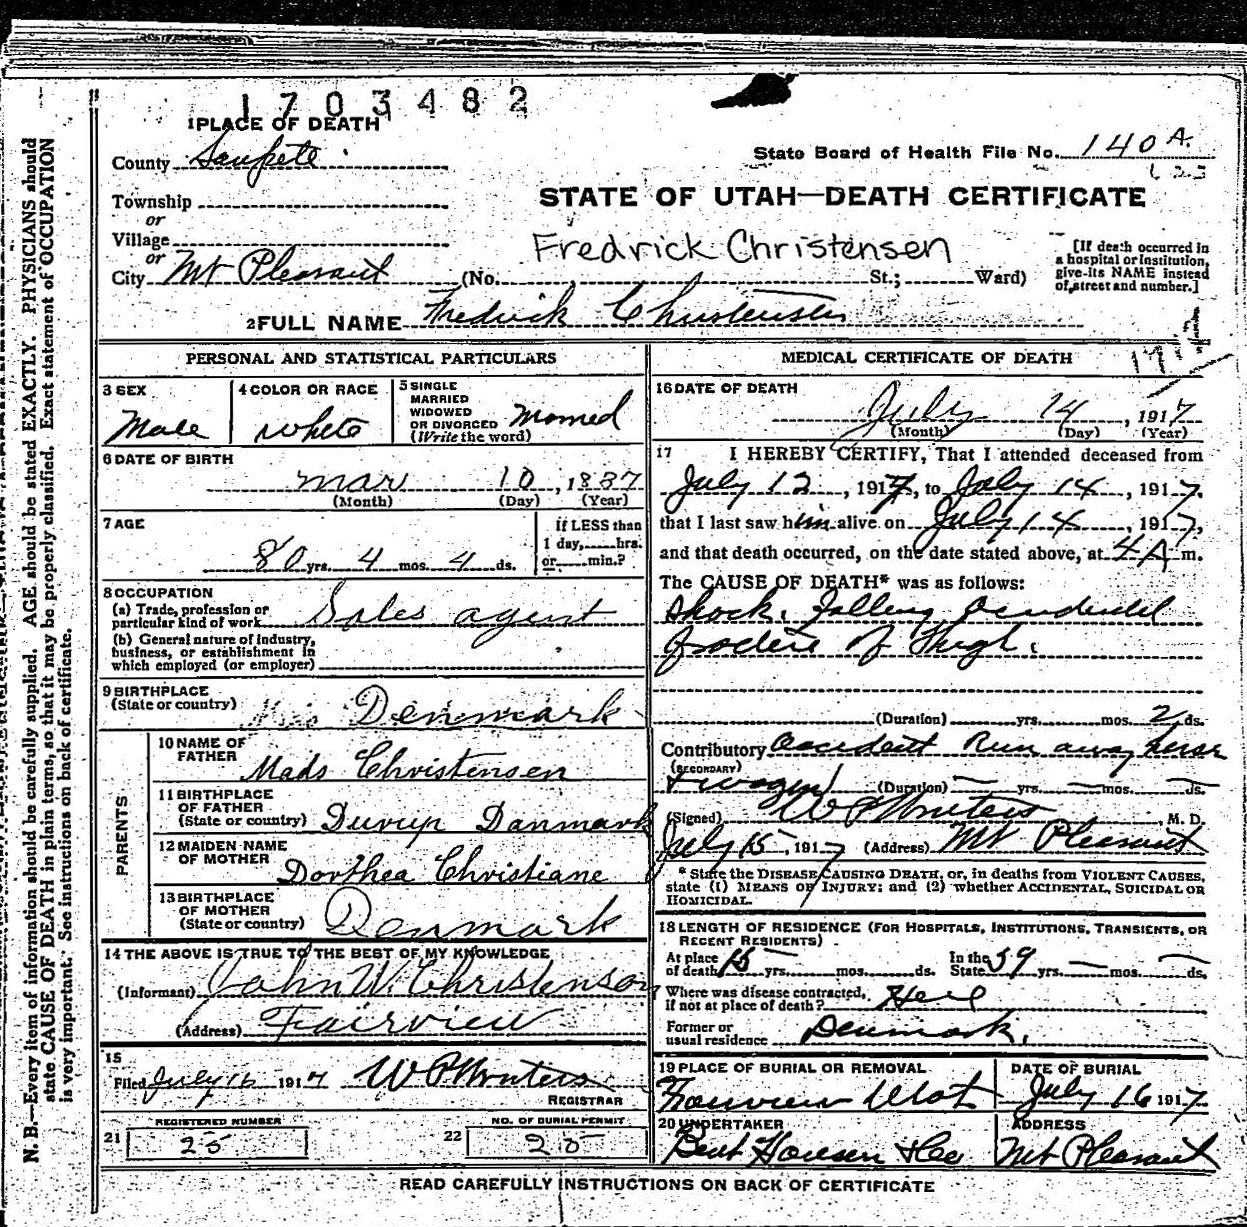 1703482
1 PLACE OF DEATH
County Sanpete
State Board of Health File No. 140 A.
Township
or
Village
or
City Mt Pleasant (No. St.; Ward)
STATE OF UTAH—DEATH CERTIFICATE
Fredrick Christensen
[If death occurred in
a hospital or institution,
give its NAME instead
of street and number.]
2 FULL NAME Fredrick Christensen
PERSONAL AND STATISTICAL PARTICULARS
3 SEX
Male
4 COLOR OR RACE
White
5 SINGLE
MARRIED
WIDOWED
OR DIVORCED
(Write the word)
6 DATE OF BIRTH
Mar 10, 1837
(Month) (Day) (Year)
7 AGE
80 yrs. 4 mos. 4 ds.
if LESS than
1 day, hrs.
or min.?
8 OCCUPATION
(a) Trade, profession or
particular kind of work Sales agent
(b) General nature of industry,
business, or establishment in
which employed (or employer)
9 BIRTHPLACE
(State or country) Denmark
PARENTS
10 NAME OF
FATHER
Mads Christensen
11 BIRTHPLACE
OF FATHER
(State or country) Durup Danmark
12 MAIDEN NAME
OF MOTHER
Dorthea Christiane
13 BIRTHPLACE
OF MOTHER
(State or country) Denmark
14 THE ABOVE IS TRUE TO THE BEST OF MY KNOWLEDGE
(Informant) John W. Christenson
(Address) Fairview
15
Filed July 16 1917 W P Winters
REGISTRAR
REGISTERED NUMBER
21 25
NO. OF BURIAL PERMIT
22 25
MEDICAL CERTIFICATE OF DEATH
16 DATE OF DEATH
July 14, 1917
(Month) (Day) (Year)
17 I HEREBY CERTIFY, That I attended deceased from
July 12, 1917, to July 14, 1917,
that I last saw him alive on July 14, 1917,
and that death occurred, on the date stated above, at 4 A m.
The CAUSE OF DEATH* was as follows:
Shock. Following
of Thigh.
(Duration) yrs. mos. 2 ds.
Contributory accident Run away horse
(SECONDARY)
+ wagon (Duration) — yrs. — mos. — ds.
(Signed) W P Winters, M. D.
July 15, 1917 (Address) Mt Pleasant
* State the DISEASE CAUSING DEATH, or, in deaths from VIOLENT CAUSES,
state (1) MEANS OF INJURY; and (2) whether ACCIDENTAL, SUICIDAL OR
HOMICIDAL.
18 LENGTH OF RESIDENCE (FOR HOSPITALS, INSTITUTIONS, TRANSIENTS, OR
RECENT RESIDENTS)
At place
of death 15 yrs. mos. ds. In the
State 59 yrs. — mos. — ds.
Where was disease contracted,
if not at place of death?
Former or
usual residence Denmark.
19 PLACE OF BURIAL OR REMOVAL
Fairview Utah
DATE OF BURIAL
July 16 1917
20 UNDERTAKER
Bent Hansen + Co
ADDRESS
Mt Pleasant
READ CAREFULLY INSTRUCTIONS ON BACK OF CERTIFICATE
N. B.—Every item of information should be carefully supplied. AGE should be stated EXACTLY. PHYSICIANS should
state CAUSE OF DEATH in plain terms, so that it may be properly classified. Exact statement of OCCUPATION
is very important. See instructions on back of certificate.